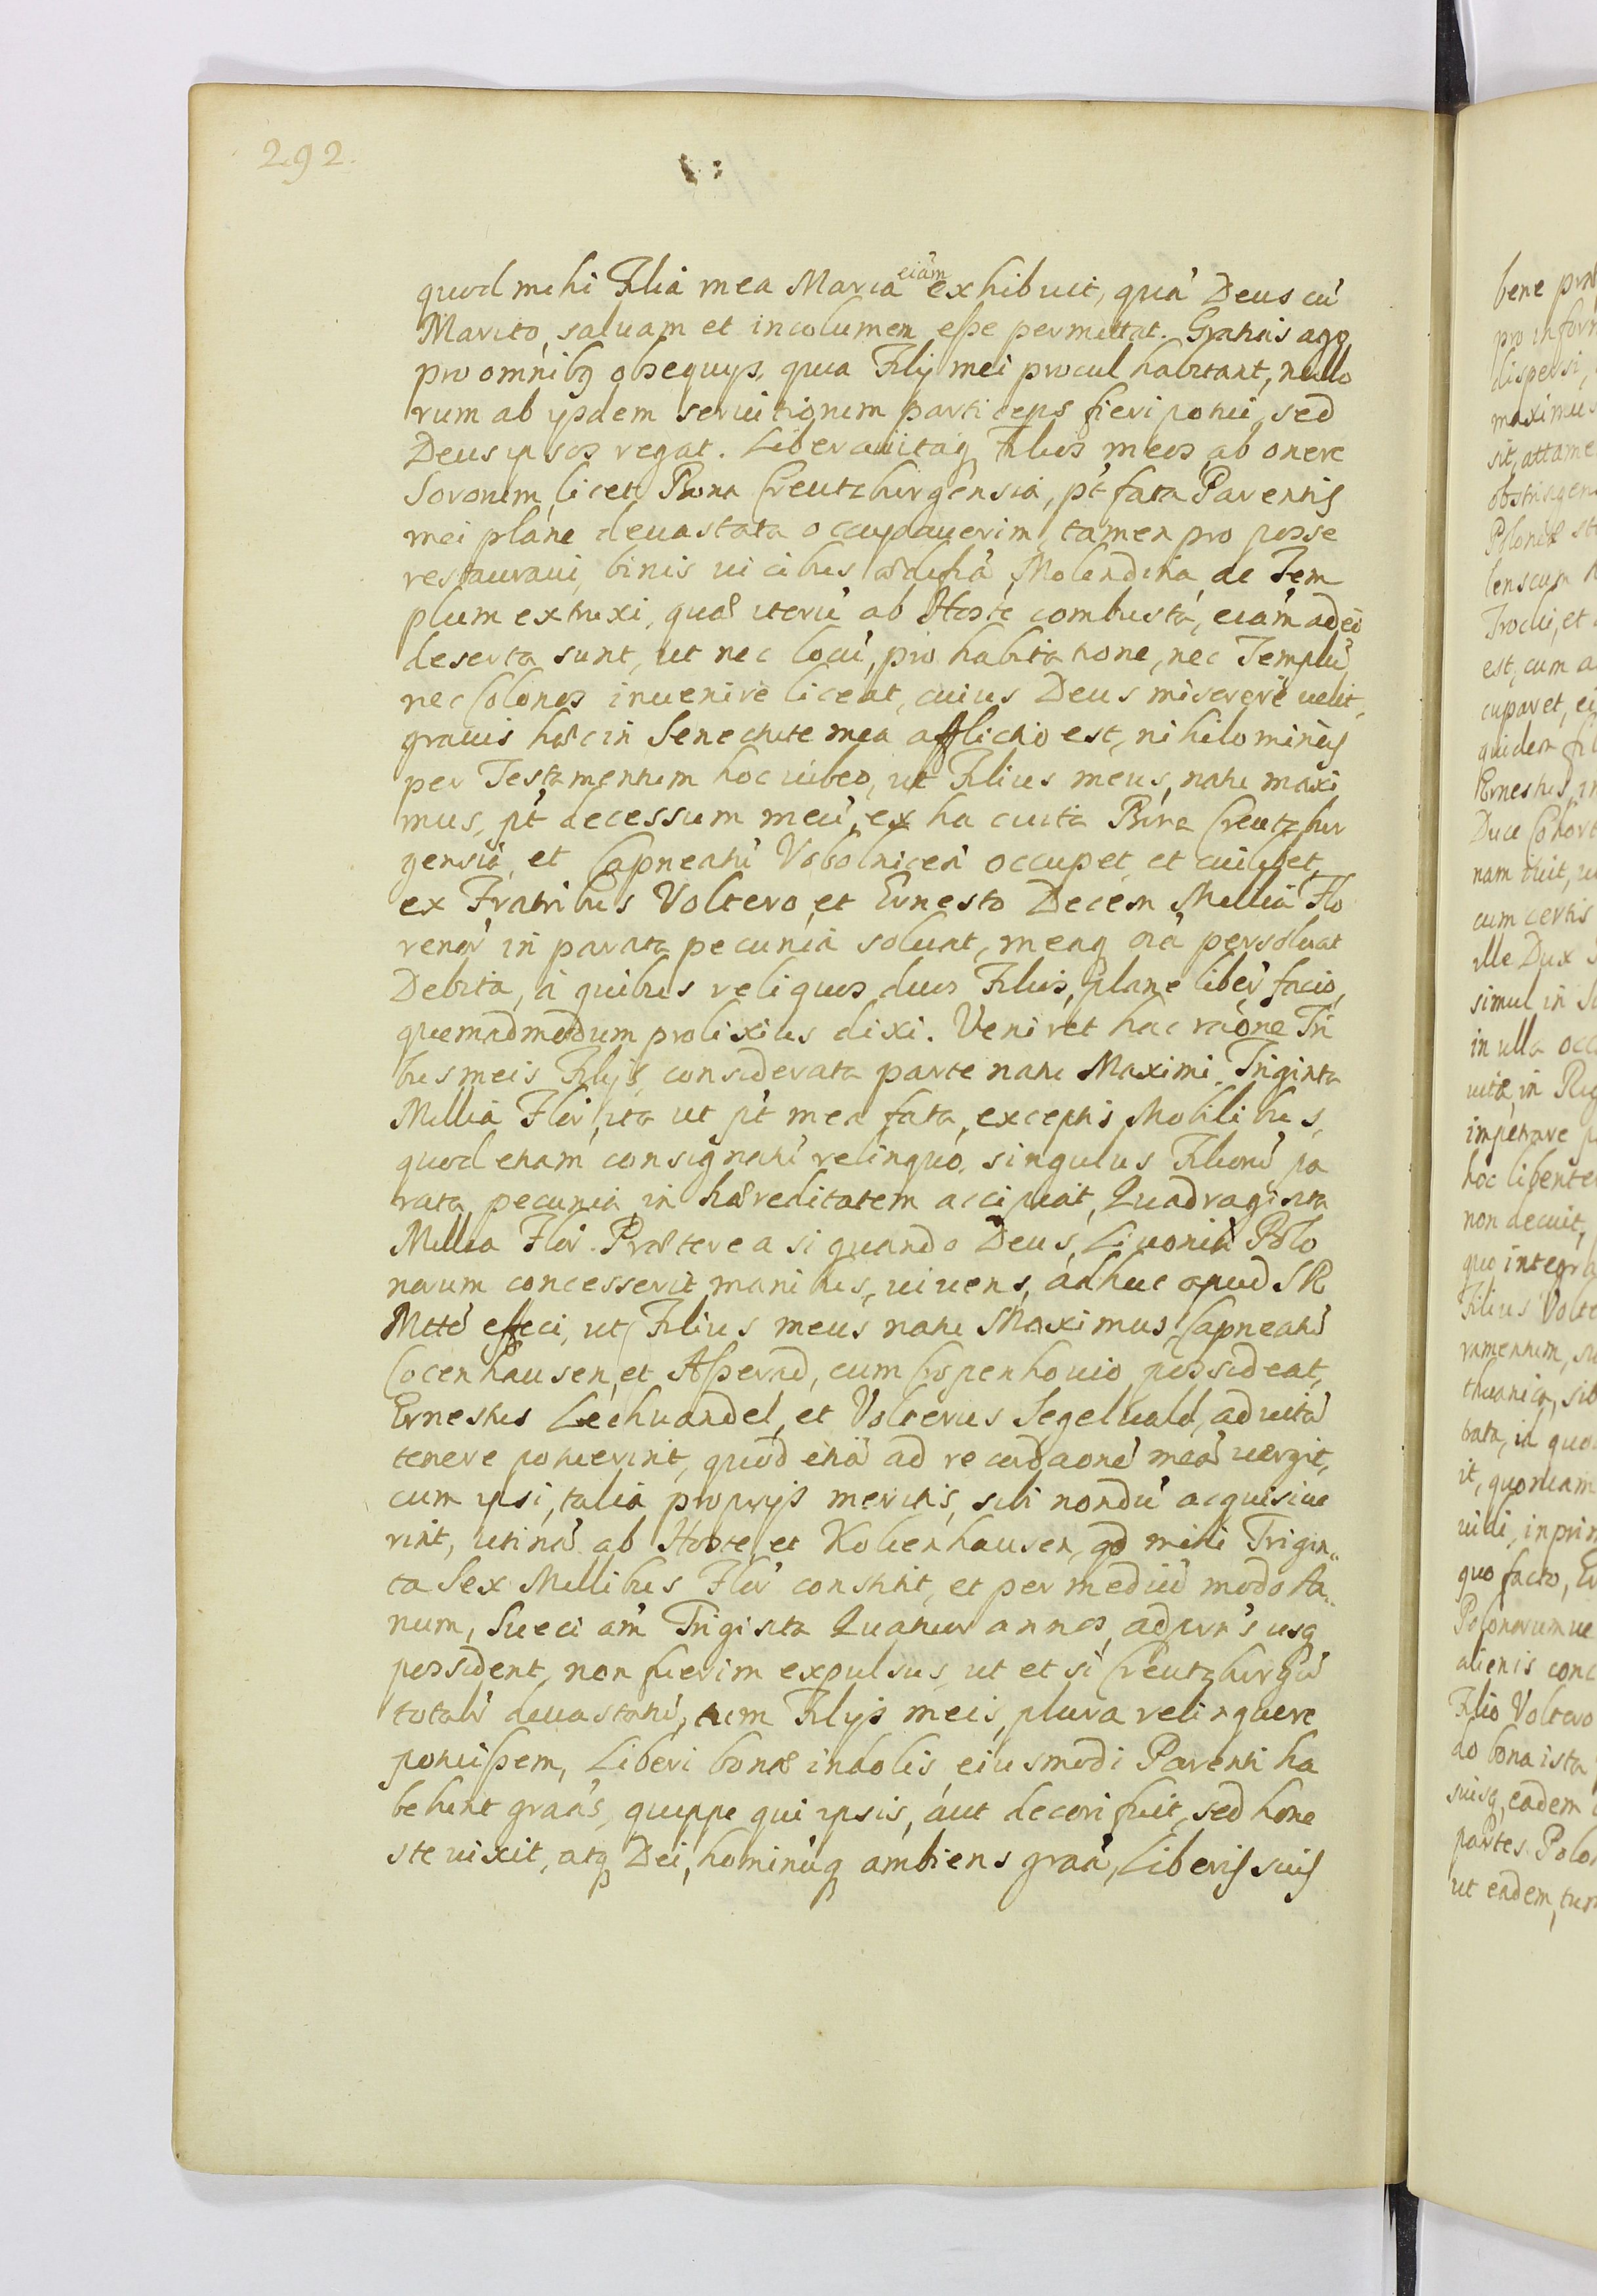 292.
quod mihi Filia mea Maria eiam exhibuit, quã Deus cũ
Marito, saluam et incolumem eße permittat. Gratias ago
pro omnibq obsequys, quia Filij mei procul habitant, nullo
rum ab ysdem seruitiorum particeps fieri potui, sed
Deus ipsos regat. Liberaui itaq Filios meos ab onere
Sororum, licet Bona Creutzburgensia, pt fata Parentis
mei plane deuastata occupauerim, tamen pro posse
restauraui, binis uicibus ædifia Molendina ac Tem
plum extruxi, quæ iterũ ab Hoste combusta, eiam adeo
deserta sunt, ut nec locũ, pro habitatione, nec Templũ
nec Colonos inuenire liceat, cuius Deus miserere uelit,
grauis hæc in Senectute mea afflictio est, nihilominus
per Testamentum hoc iubeo, ut Filius meus, natu maxi
mus, pt decessum meũ, ex ha cuita Bona Creutzbur
gensiũ, et Capneatũ Vobolnicen occupet, et cuilibet
ex Fratribus Voltero et Ernesto Decem Millia Flo
renor in parata pecunia soluat, meaq oia persoluat
Debita, à quibus reliquos duos Filios, plane liber facio,
quemadmodum prolixius dixi. Veniret hac raone Tri
bus meis Filijs, considerata parte natu Maximi, Triginta
Millia Flor, ita ut pt mea fata, exceptis Mobilibus,
quod etiam consignatũ relinquo, singulus Filiorũ pa
rata pecunia, in hæreditatem accipiat, Quadraginta
Millia Flor. Præterea si quando Deus, Liuoniã Polo
norum concesserit manibus, uiuens, adhuc apud SR
Mttẽ effeci, ut Filius meus natu Maximus, Capneatũ
Cocenhausen, et Aßerad, cum Cospenhouio possideat,
Ernestus Lechuandel, et Volterus Segeluald, ad uitã
tenere potuerint, quod etiã ad recordaonẽ meã uergit,
cum ipsi, talia proprys meritis, sibi nondũ acquisiue
rint, utinã ab Hoste, et Kokenhausen, qd mihi Trigin„
ta Sex Millibus Flor constitit, et per mediũ modo An„
num, Sueci am Triginta Quatuor annos, ad prns usq
possident, non fuerim expulsus, ut et si Creutzburgũ
totalr deuastatũ, tum Filijs meis, plura relinquere
potuißem, Liberi bonæ indolis, eiusmodi Parenti ha
bebunt graas, quippe qui ipsis, aut decori fuit, sed hone
ste uixit, atq Dei, hominũq ambiens graã, Liberis suis
bene
pro inform
dispersi,
maximus
sit, attame
Poloniæ
lenscum
Trocki, et
est, cum a
cuparet,
quidem
Ernestus,
Duce Cohort
nam
cum certis
ille Dux
simul in
in ulla occ
uita, in Rig
impetrare
hoc libenter
non decuit,
quo integr
Filius Volte
ramentum,
bata, id quo
it, quoniam
uidi, inprim
quo facto,
Polonorum
alienis conc
Filio Voltero
do bona ista
suisq, eadem
partes. Polo
ut eadem, tum